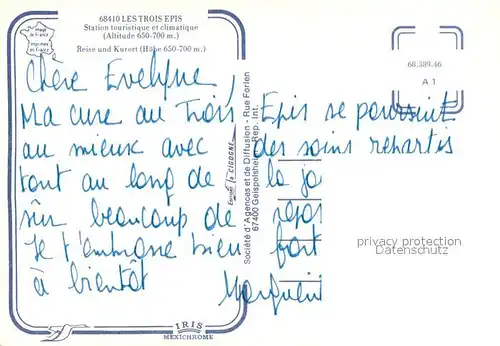 68410 LES TROIS EPIS
Station touristique et climatique
(Altitude 650-700 m.)
Reise und Kurort (Höhe 650-700 m.)
Image de France
Imprimée en France
68.389.46
A 1
Chère Evelyne,
Ma cure au Trois Epis se poursuit
au mieux avec des soins repartis
tout au long de la jo
sûr beaucoup de repos
Je t'embrasse bien fort
à bientôt Marguerit
Editions "La CIGOGNE"
Société d'Agences et de Diffusion - Rue Forlen
67400 Geispolsheim - Rep. Int.
privacy protection
Datenschutz
IRIS
MEXICHROME